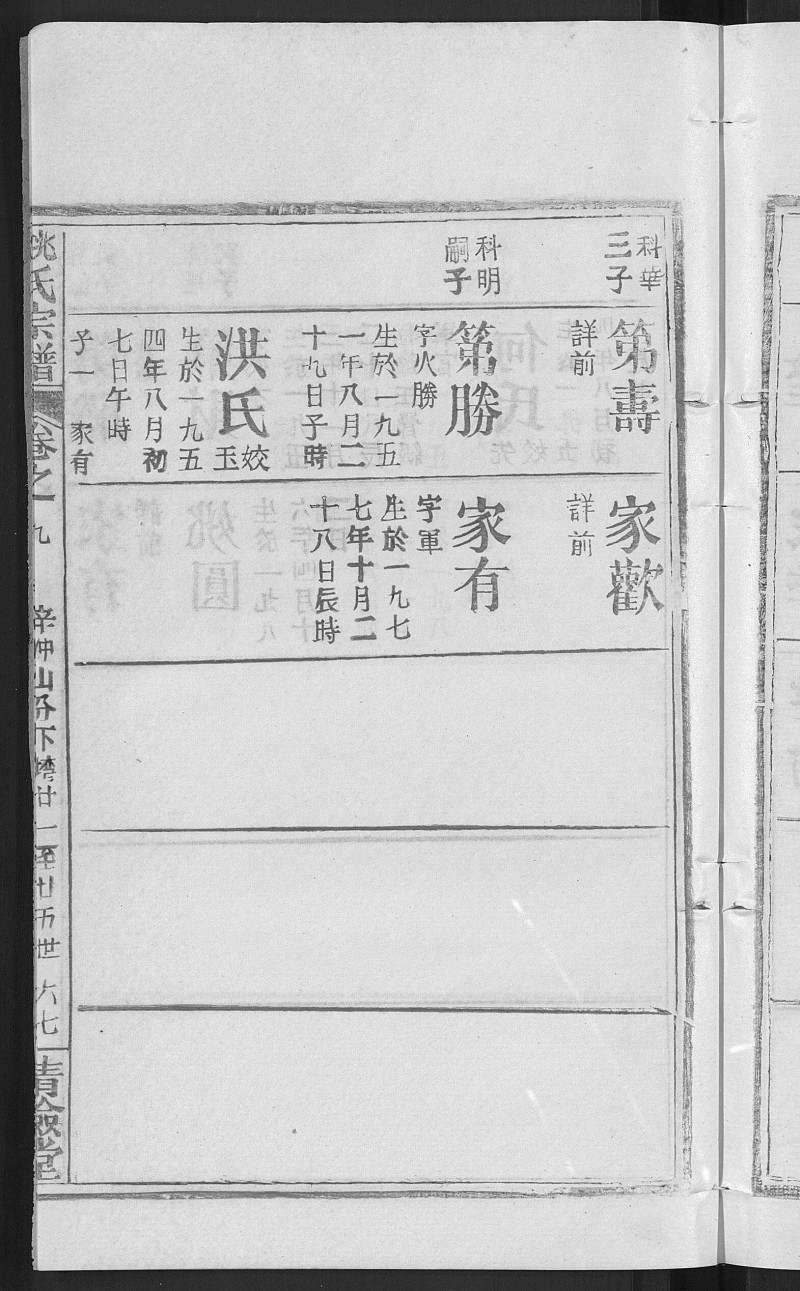 科華
三子
第壽
詳前
家歡
詳前
科明
嗣子
第勝
字火勝
生於一九五
一年八月二
十九日子時
洪氏姣玉
生於一九五
四年八月初
七日午時
子一 家有
家有
字軍
生於一九七
七年十月二
十八日辰時
姚氏宗譜
卷之一
九
仲山分下
廿一至廿五世
六七